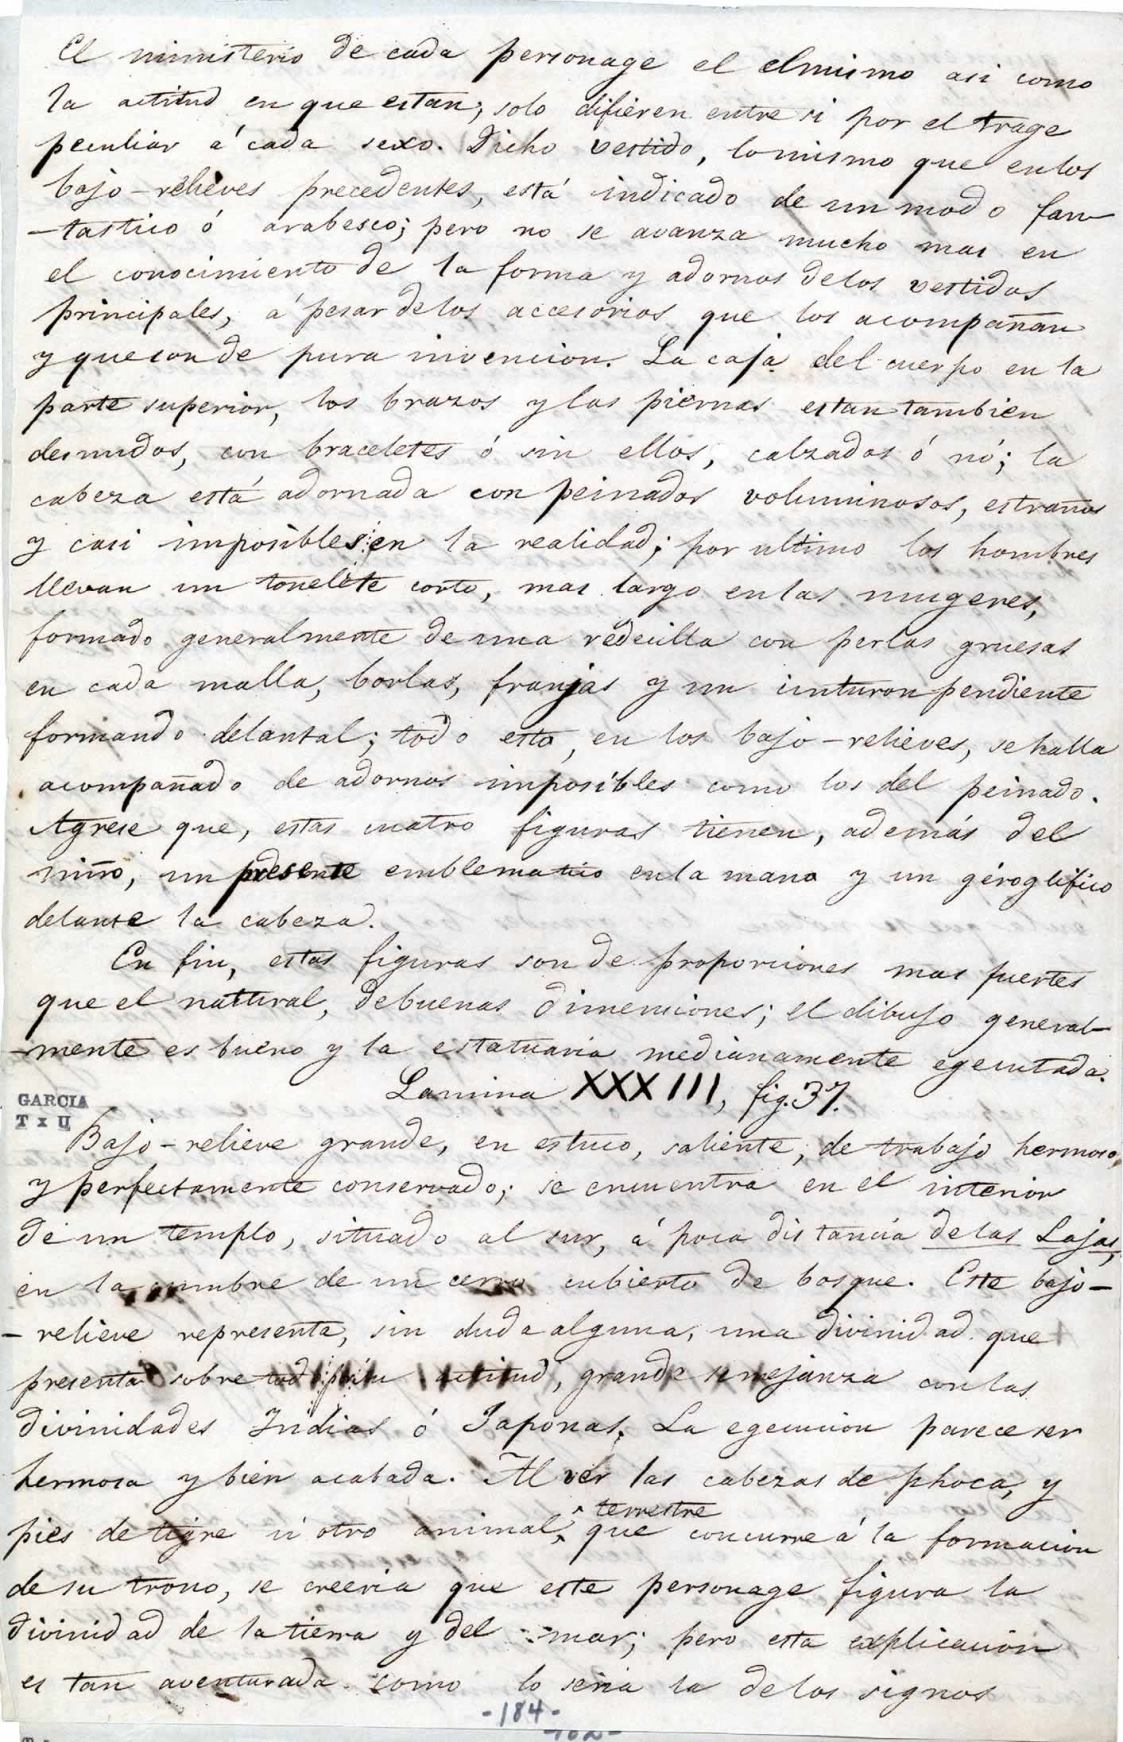 El ministerio de cada personage el elmismo asi como
la actitud en que estan; solo difieren entre si por el trage
peculiar á cada sexo. Dicho vestido, lo mismo que en los
bajo-relieves precedentes, está indicado de un modo fan-
-tastico ó arabesco; pero no se avanza mucho mas en
el conocimiento de la forma y adornos de los vestidos
principales, á pesar de los accesorios que los acompañan
y que son de pura invencion. La caja del cuerpo en la
parte superior, los brazos y las piernas estan tambien
desnudos, con braceletes ó sin ellos, calzados ó nó; la
cabeza está adornada con peinados voluminosos, estraños
y casi imposibles en la realidad; por ultimo los hombres
llevan un tonelete corto, mas largo en las mugeres,
formado generalmente de una redecilla con perlas gruesas
en cada malla, borlas, franjas y un cinturon pendiente
formando delantal; todo esto, en los bajo-relieves, se halla
acompañado de adornos imposibles como los del peinado.
Agrese que, estas cuatro figuras tienen, además del
niño, un presente emblematico en la mano y un géroglifico
delante la cabeza.
En fin, estas figuras son de proporciones mas fuertes
que el natural, de buenas dimenciones; el dibujo general-
-mente es bueno y la estatuaria medianamente egecutada.
Lamina XXXIII, fig. 37.
GARCIA
T x U
Bajo-relieve grande, en estuco, saliente, de trabajo hermoso,
y perfectamente conservado; se encuentra en el interior
de un templo, situado al sur, á poca distancia de las Lajas,
en la cumbre de un cerro cubierto de bosque. Este bajo-
-relieve representa, sin duda alguna, una divinidad que
presenta sobre todo actitud, grande semejanza con las
divinidades Indias ó Japonas. La egecucion parece ser
hermosa y bien acabada. Al ver las cabezas de phoca, y
pies de tigre ú otro animal, terrestre que concurre á la formacion
de su trono, se creeria que este personage figura la
divinidad de la tierra y del mar; pero esta explicacion
es tan aventurada como lo seria la de los signos
-184-